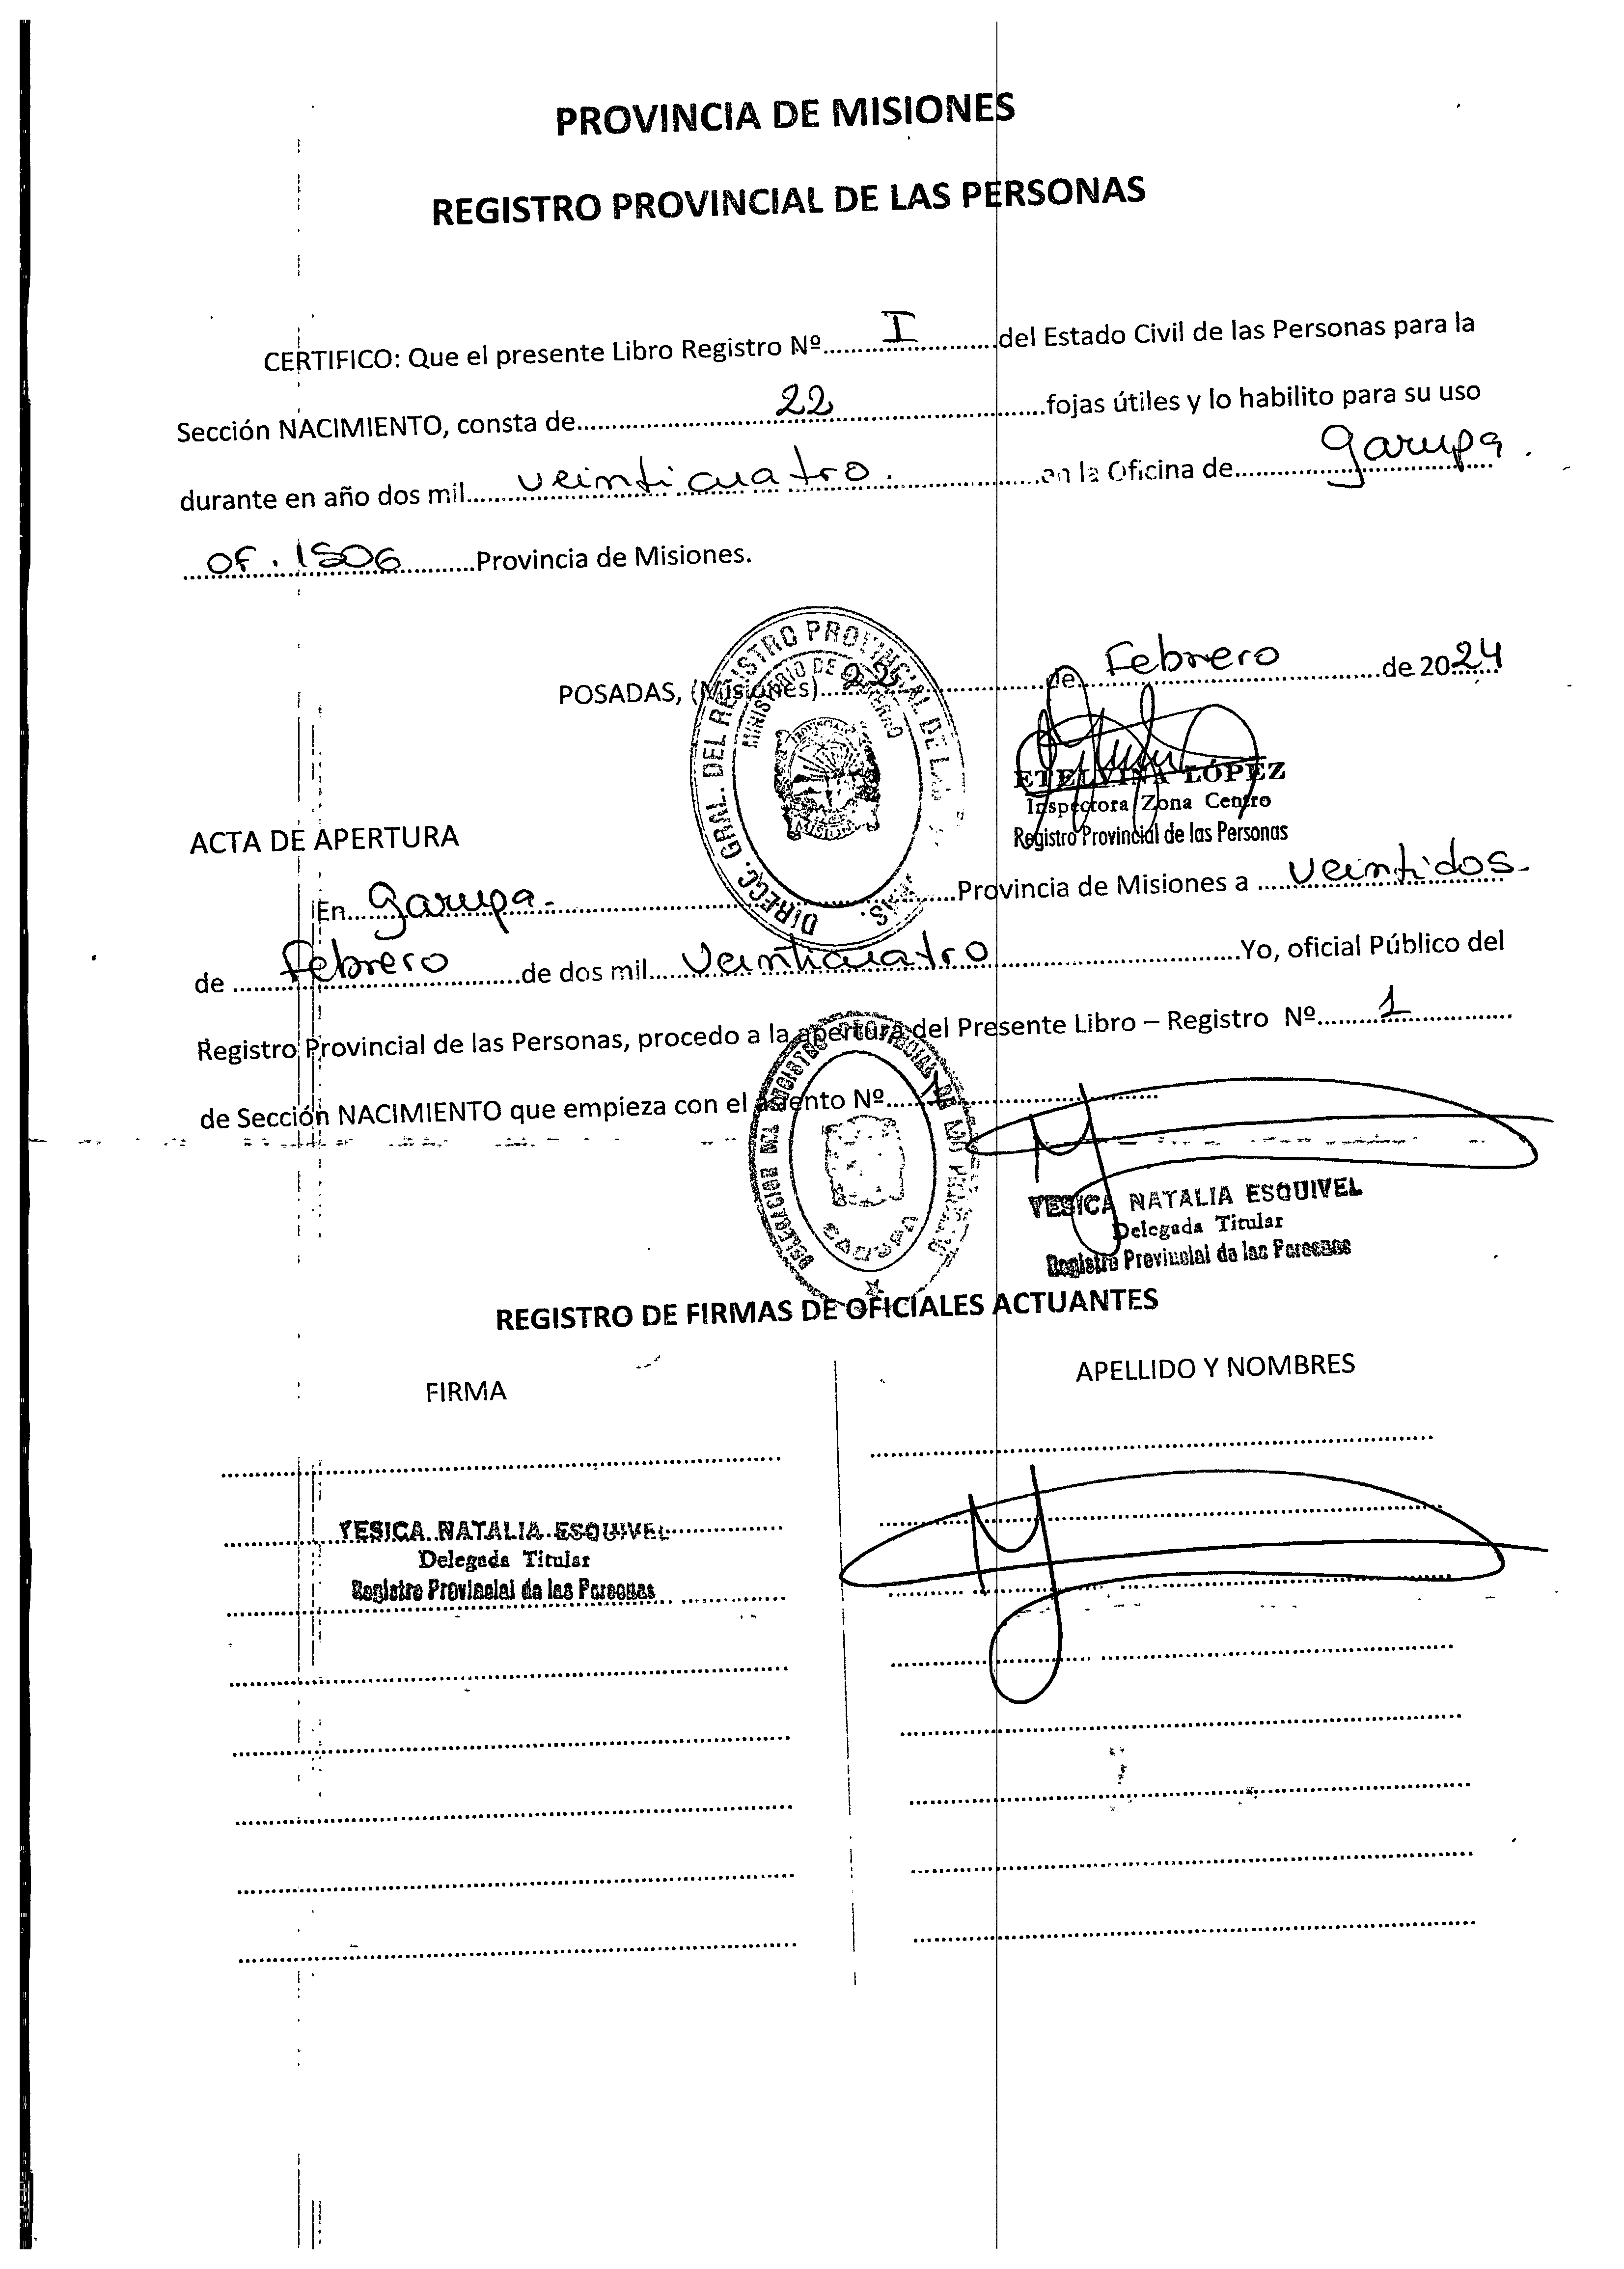 PROVINCIA DE MISIONES
REGISTRO PROVINCIAL DE LAS PERSONAS
CERTIFICO: Que el presente Libro Registro Nº......I......del Estado Civil de las Personas para la
Sección NACIMIENTO, consta de......22......fojas útiles y lo habilito para su uso
durante en año dos mil......veinticuatro.......en la Oficina de......Garupa.
...OF. 1506......Provincia de Misiones.
POSADAS, (Misiones)......22......de......Febrero......de 2024
DIRECC. GRAL. DEL REGISTRO PROVINCIAL DE LAS
MINISTERIO DE GOBIERNO
ETELVINA LÓPEZ
Inspectora Zona Centro
Registro Provincial de las Personas
ACTA DE APERTURA
En...Garupa-......Provincia de Misiones a ...veintidos-
de ......Febrero......de dos mil......Veinticuatro......Yo, oficial Público del
Registro Provincial de las Personas, procedo a la apertura del Presente Libro – Registro Nº......1......
de Sección NACIMIENTO que empieza con el asiento Nº......1......
DELEGACION DEL REGISTRO PROVINCIAL DE LAS PERSONAS
GARUPA
YESICA NATALIA ESQUIVEL
Delegada Titular
Registro Provincial de las Personas
REGISTRO DE FIRMAS DE OFICIALES ACTUANTES
FIRMA
APELLIDO Y NOMBRES
YESICA NATALIA ESQUIVEL
Delegada Titular
Registro Provincial de las Personas